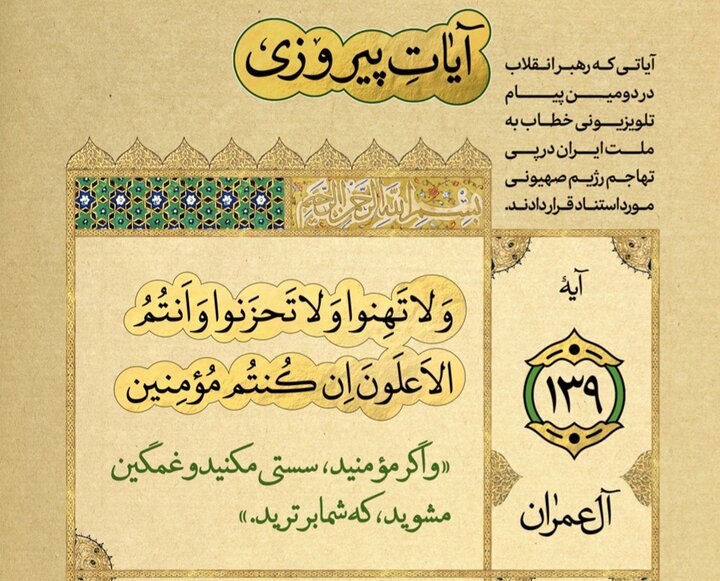 آیات پیروزی
آیاتی که رهبر انقلاب
در دومین پیام
تلویزیونی خطاب به
ملت ایران در پی
تهاجم رژیم صهیونی
مورد استناد قرار دادند.
بسم الله الرحمن الرحیم
وَلا تَهِنوا وَلا تَحزَنوا وَاَنتُمُ
الاَعلَونَ اِن کُنتُم مُؤمِنین
«و اگر مؤمنید، سستی مکنید و غمگین
مشوید، که شما برترید.»
آیهٔ
۱۳۹
آل عمران